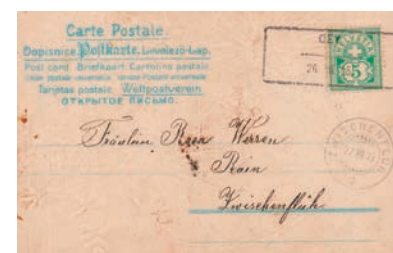 Carte Postale
Dopisnice. Postkarte. Levelező-Lap.
Post card Briefkaart Cartolina postale
Union postale universelle
Tarjetas postale Weltpostverein
ОТКРЫТОЕ ПИСЬМО.
HELVETIA
5
26
Fräulein Rosa Werren
Rain
Zwischenflüh